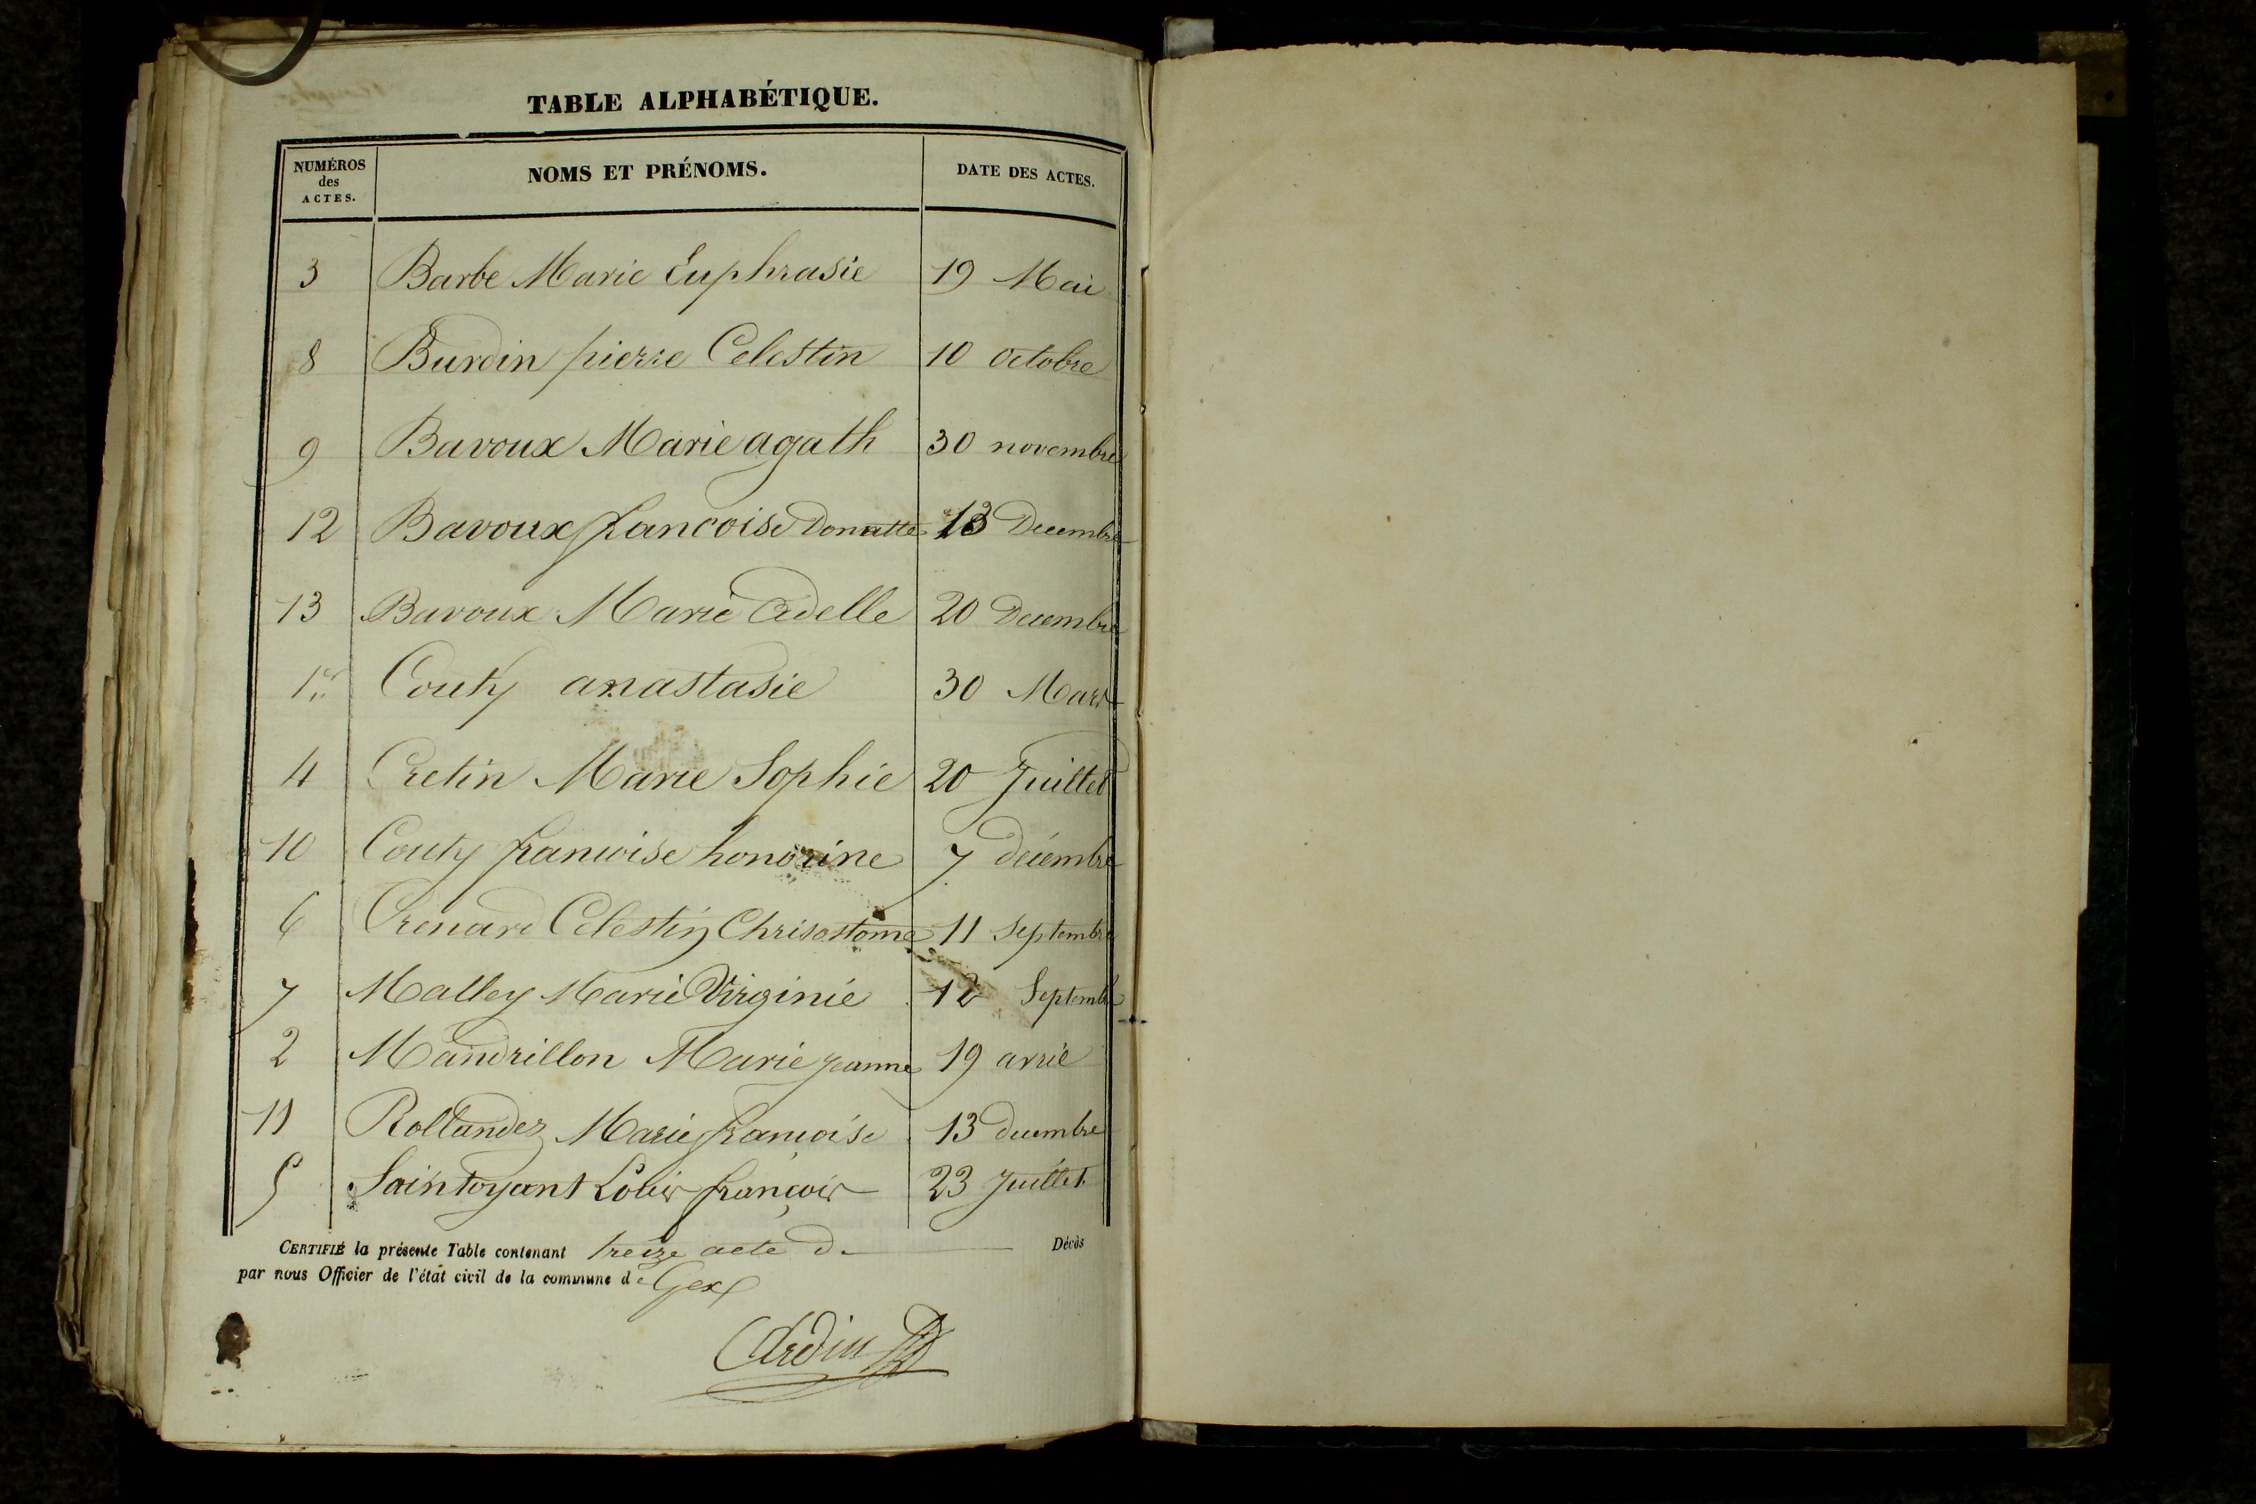 TABLE ALPHABÉTIQUE.
NUMÉROS des ACTES. NOMS ET PRÉNOMS. DATE DES ACTES.
3 Barbe Marie Euphrasie 19 Mai
8 Burdin pierre Celestin 10 octobre
9 Bavoux Marie agath 30 novembre
12 Bavoux francoise Donatte 13 Decembre
13 Bavoux Marie Adelle 20 Decembre
1er Couty anastasie 30 Mars
4 Cretin Marie Sophie 20 Juillet
10 Couty francoise honorine 7 décembre
6 Crenard Celestin Chrisostome 11 Septembre
7 Malley Marie Virginie 12 Septembre
2 Mandrillon Marie jeanne 19 avril
11 Rollandez Marie françoise 13 decembre
5 Saintoyant Louis françois 23 Juillet
CERTIFIÉ la présente Table contenant treize acte de Décès
par nous Officier de l'état civil de la commune de